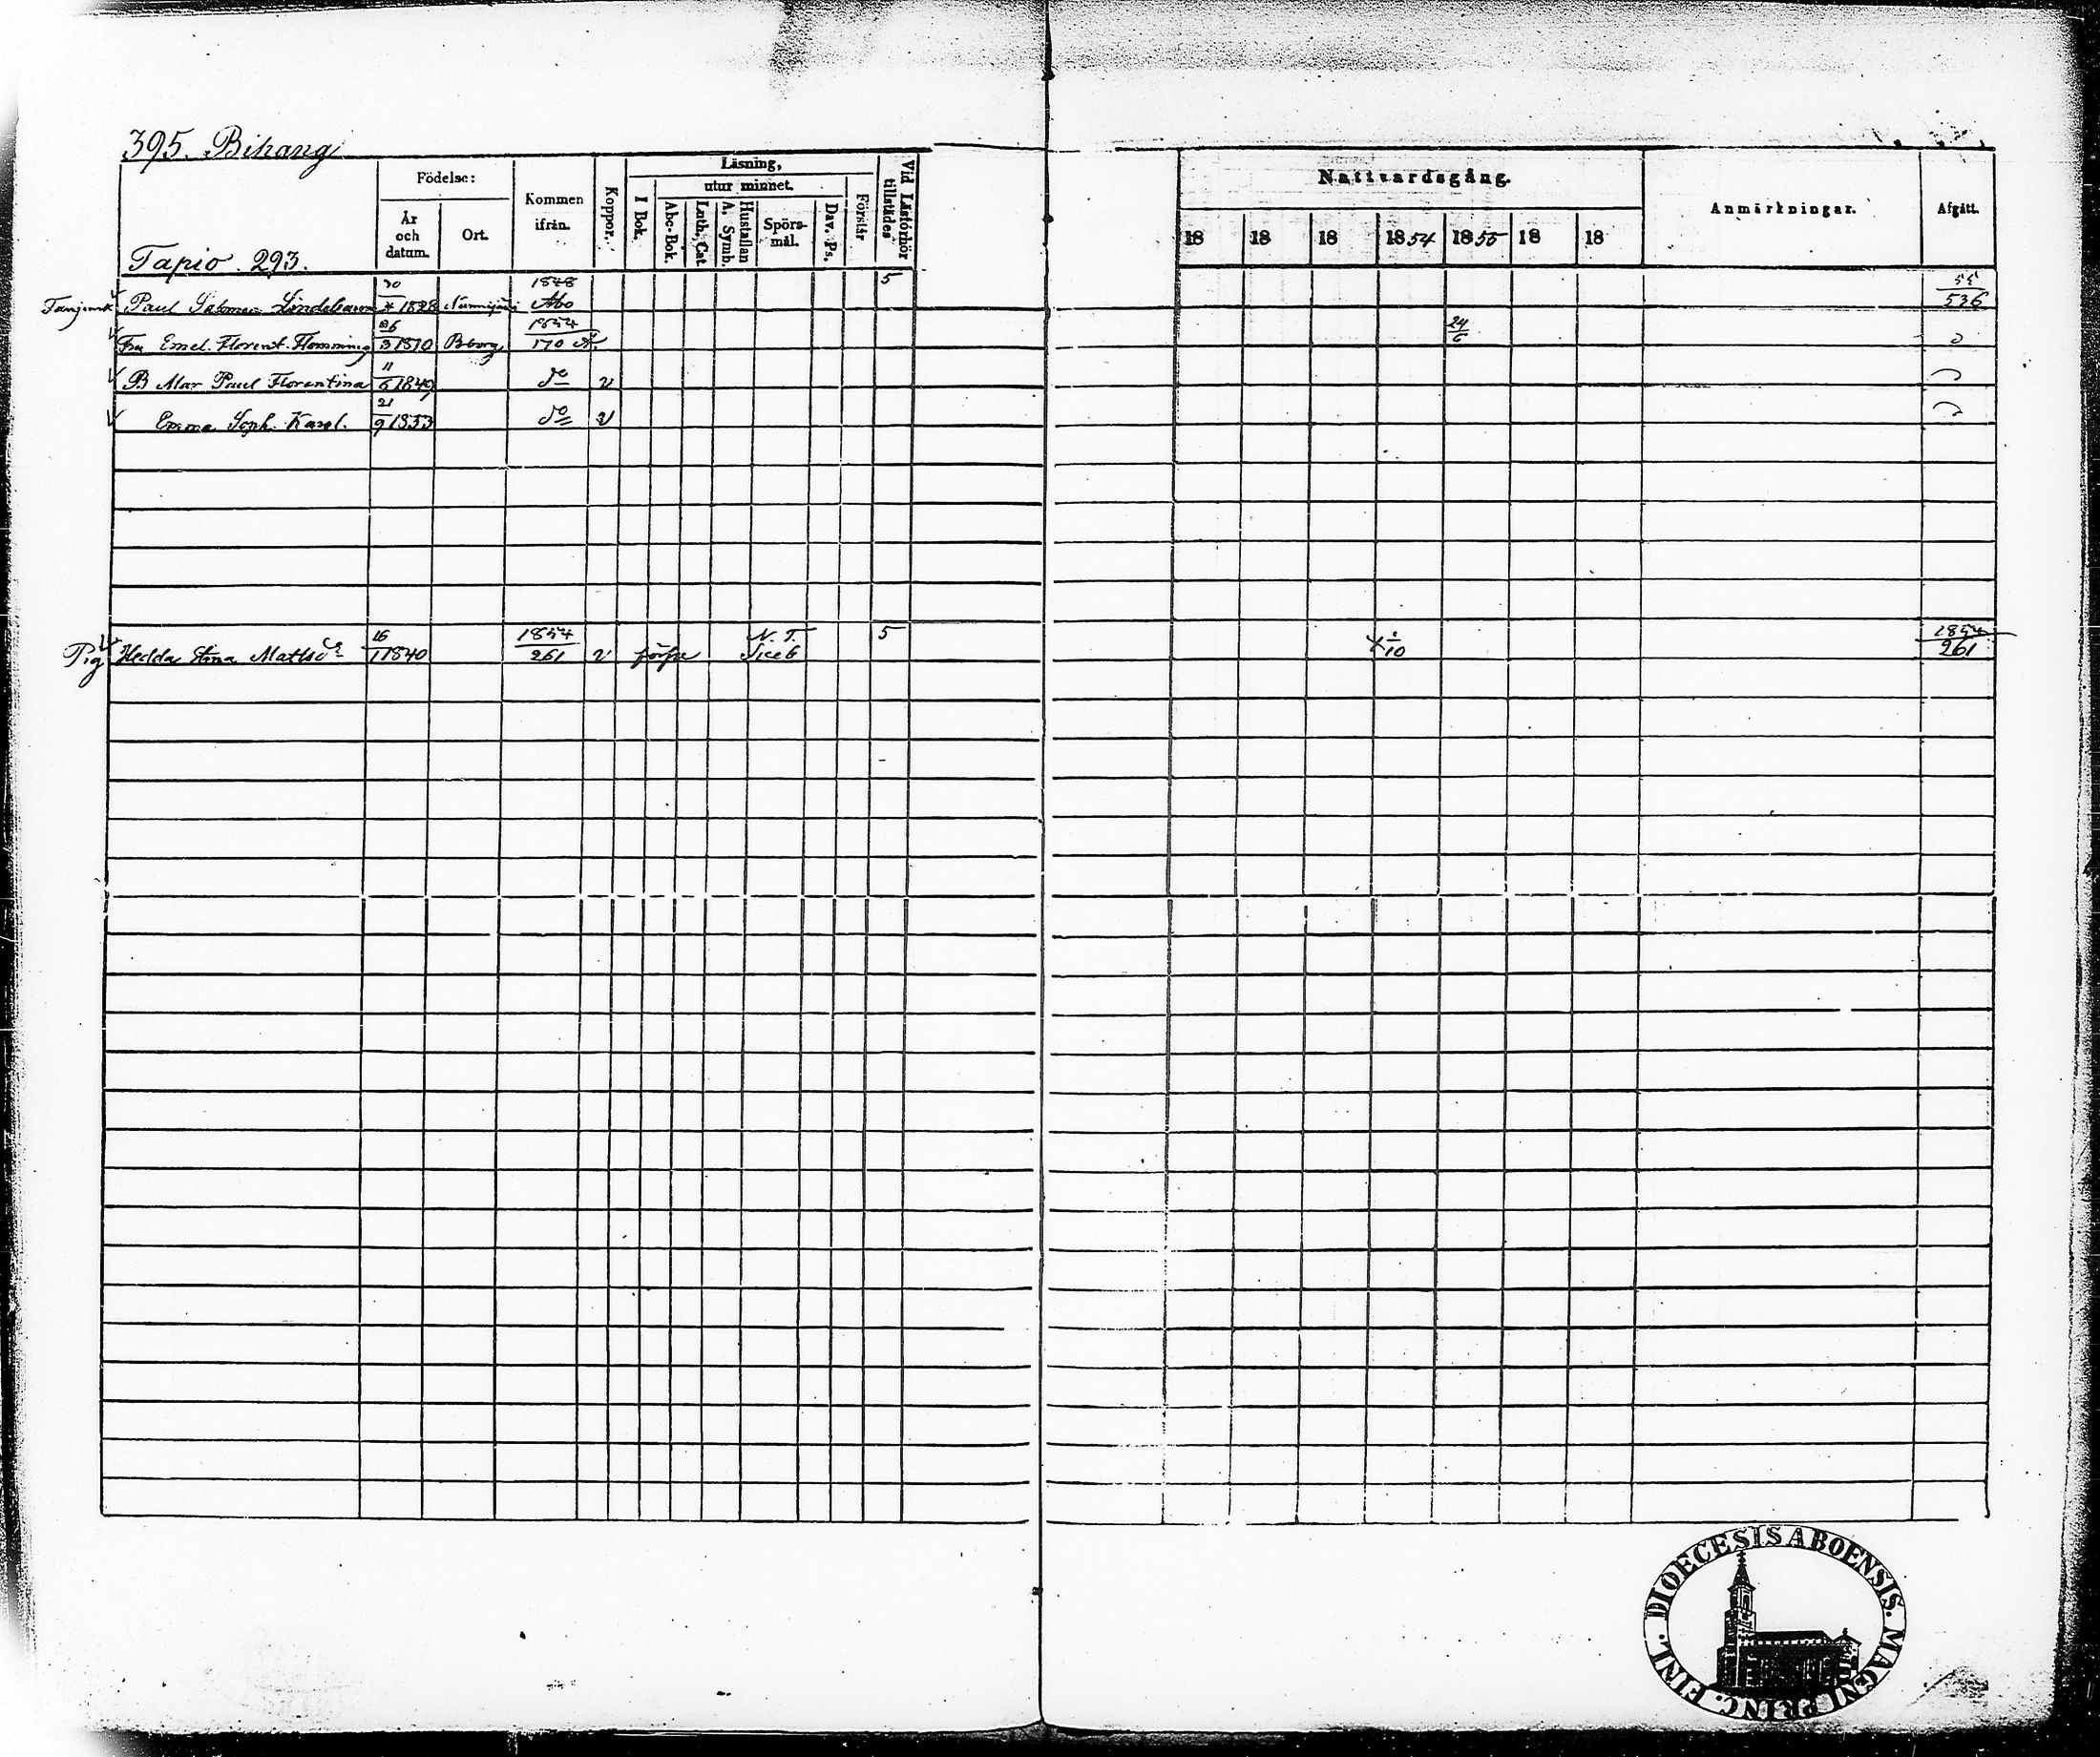 395. Bihang
Tapio. 293.
Födelse:
År och datum.
Ort.
Kommen ifrån.
Koppor.
Läsning,
utur minnet.
I Bok.
Abc-Bok.
Luth. Cat.
A. Symb.
Hustaflan
Spörs-mål.
Dav. Ps.
Förstår
Vid Läsförhör tillstädes
Nattvardsgång.
18 18 18 1854 1855 18 18
Anmärkningar.
Afgått.
Paul Salomon 1828 1848 Åbo 5 55 536
Fru Emel. Florent. Flemming 26 3 1810 Borg 1854 170 24 6
B Mar Paul Florentina 11 6 1849 do v
Emma Soph. Karol. 21 9 1853 do v
Pig Hedda Stina Matts dr 16 1 1840 1854 261 v N. T. 5 10 1854 261
DIOECESIS ABOENSIS. MAGNI PRINC. FINL.